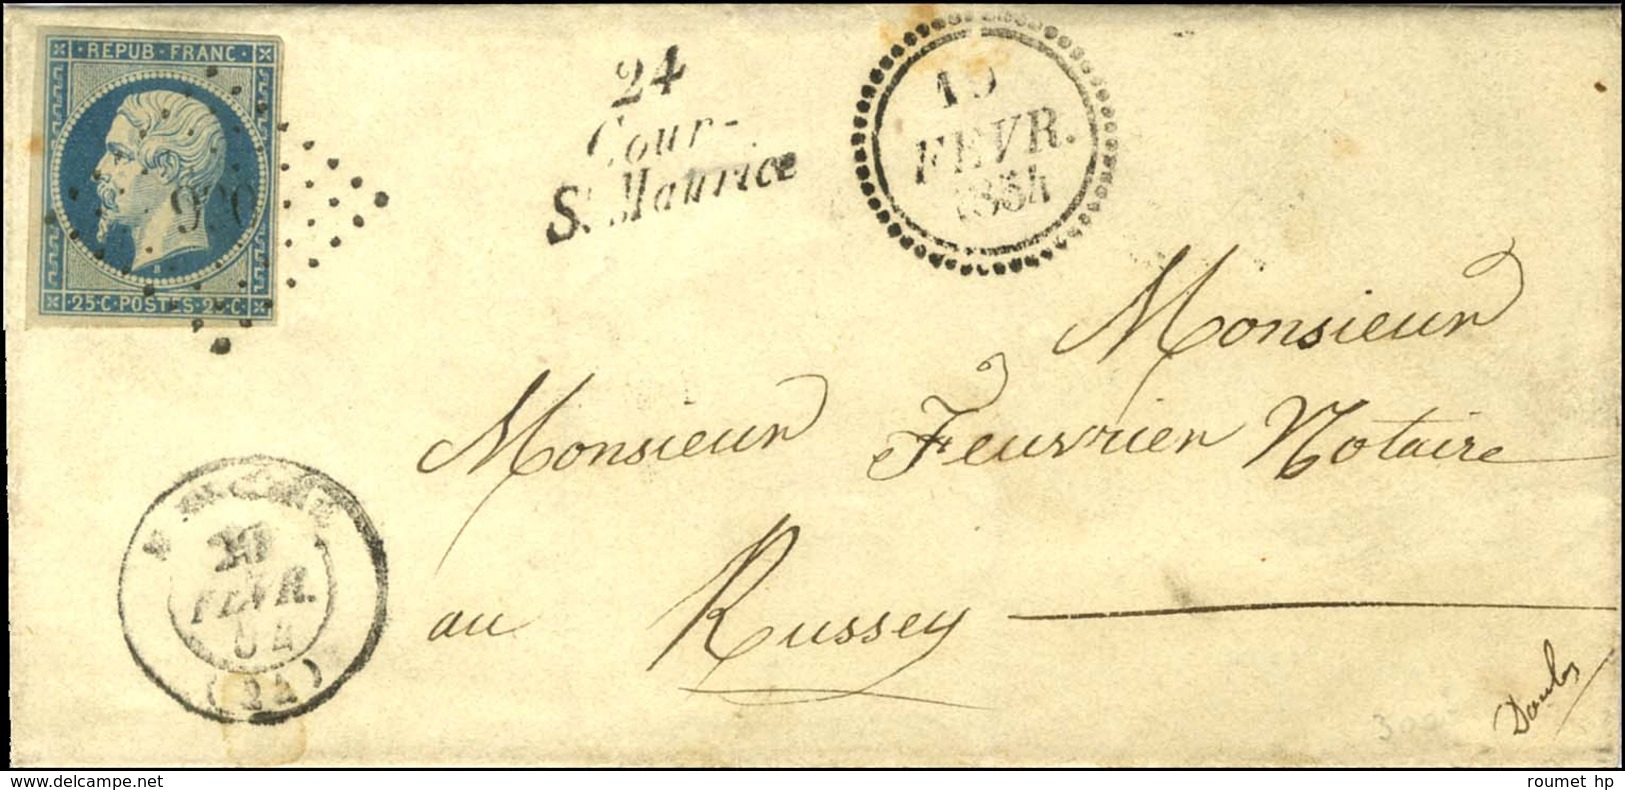 REPUB·FRANC·
B
·25·C·POSTES·25·C·
24
Cour-
St Maurice
19
FEVR.
1854
Monsieur
Monsieur Feuvrier Notaire
au Russey
20
FEVR.
54
(24)
Doubs
roumet hp